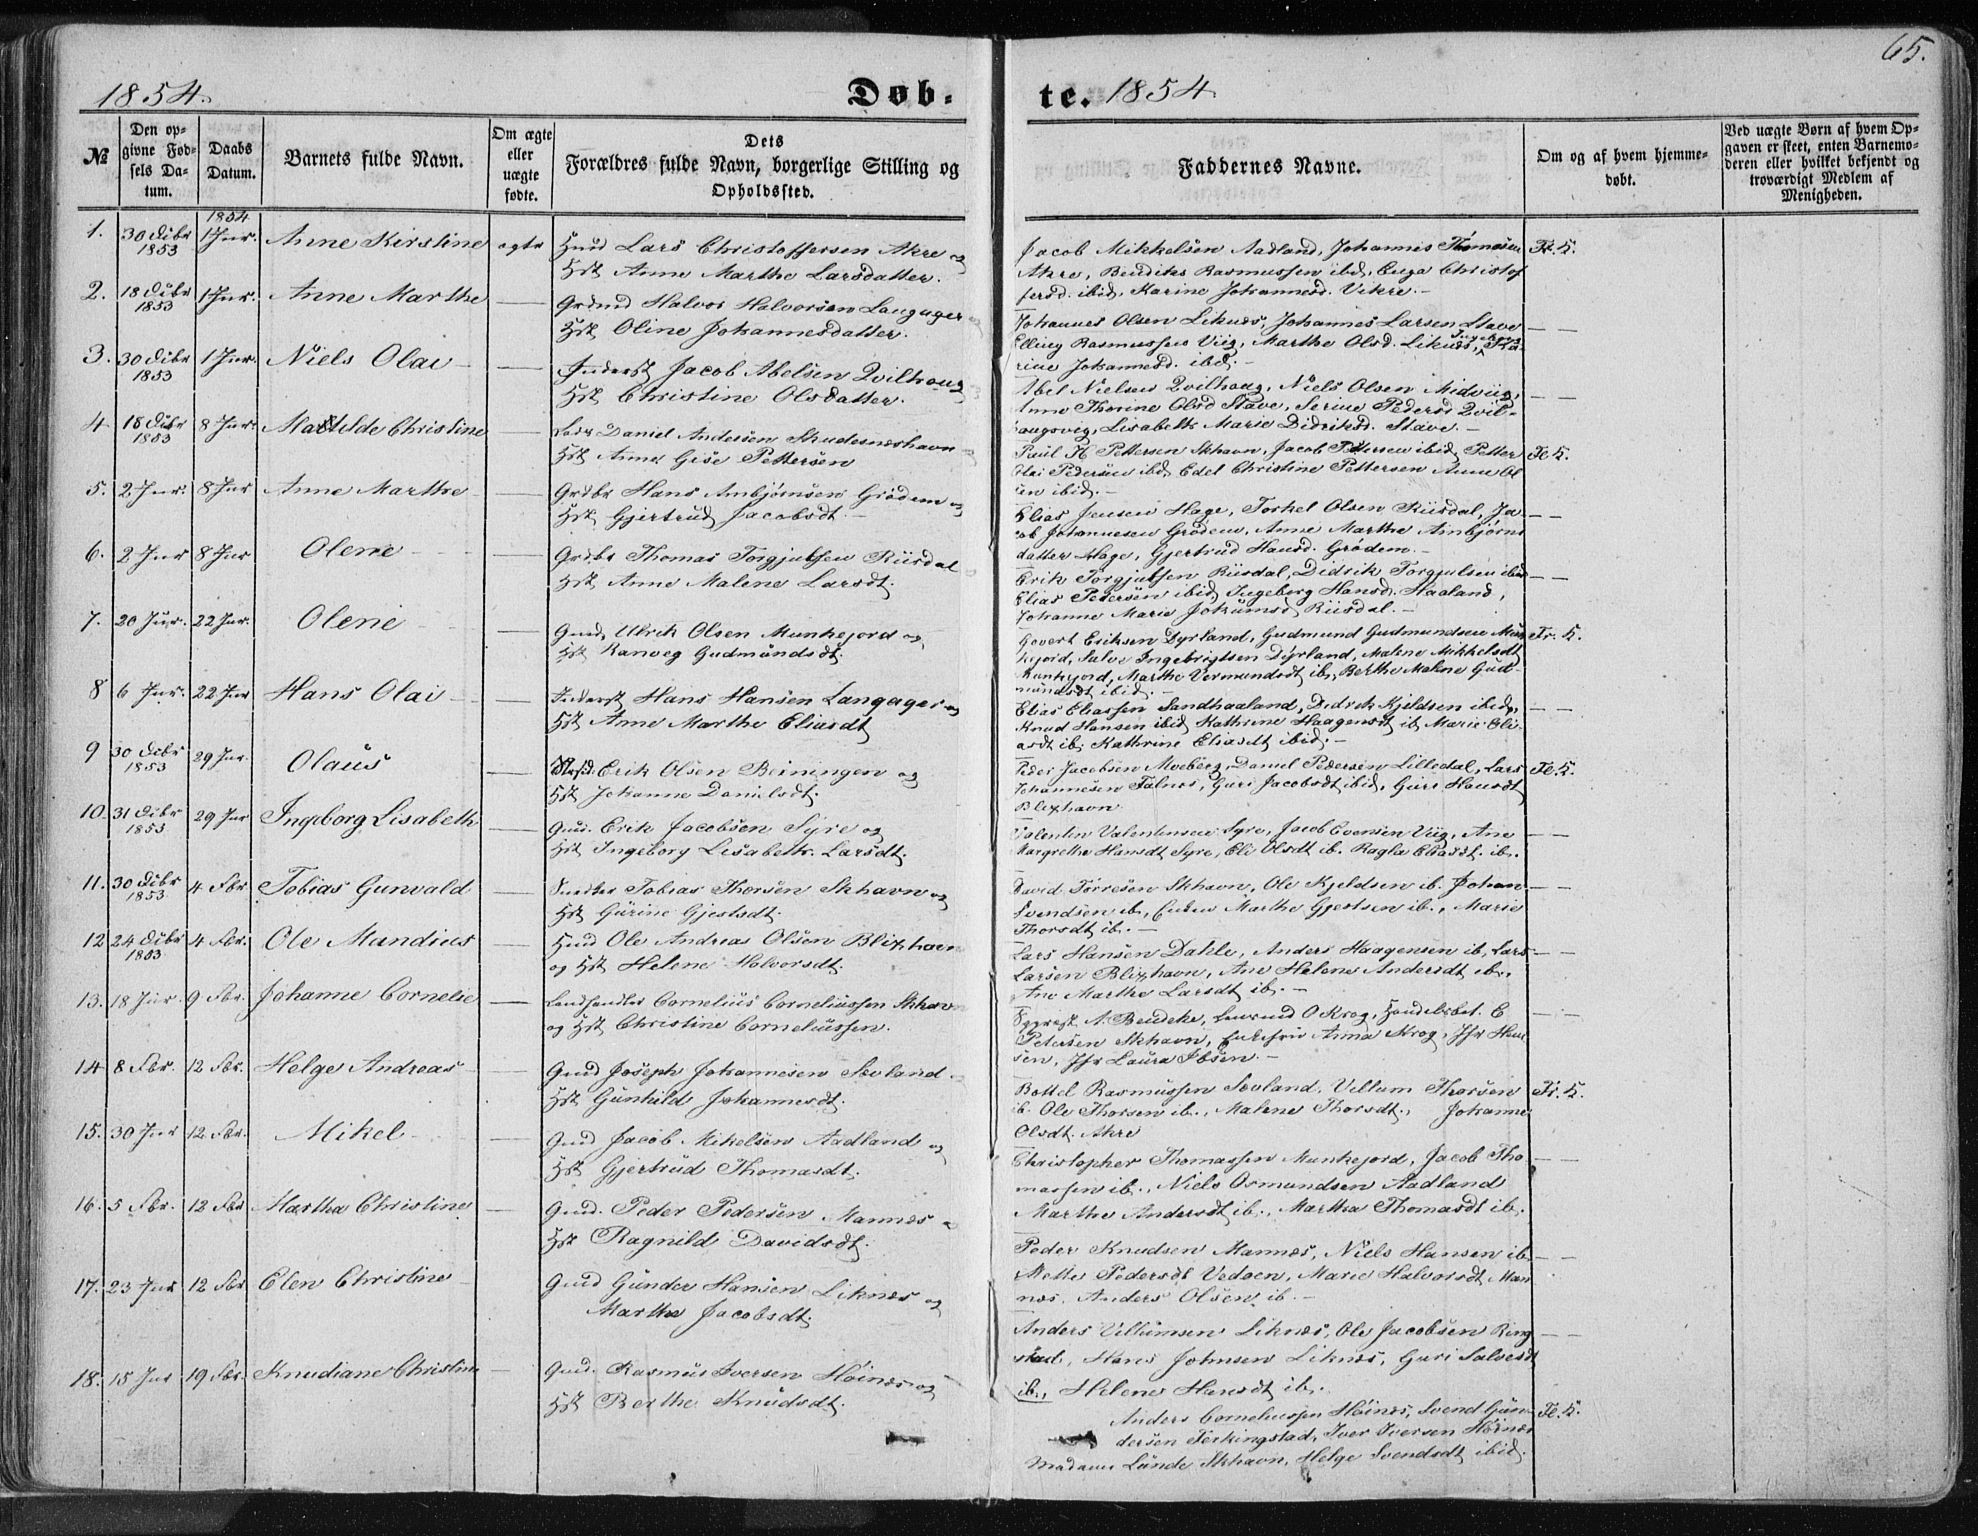 65.
1854. Døb- te. 1854
№
Den opgivne Fødsels Datum.
Daabs Datum.
Barnets fulde Navn.
Om ægte eller uægte fødte.
Dets
Forældres fulde Navn, borgerlige Stilling og
Opholdssted.
Faddernes Navne.
Om og af hvem hjemmedøbt.
Ved uægte Børn af hvem Opgaven er skeet, enten Barnemoderen eller hvilket bekjendt og troværdigt Medlem af Menigheden.
1. 30 Dcbr 1853 1854 1 Jnr. Anne Kirstine ægte
Lars Christoffersen Akre og
Hst Anne Marthe Larsdatter.
Jacob Mikkelsen Aadland, Johannes Thomasen
Akre, Rasmussen ibid, Christof
fersd. ibid, Karine Johannesd. Vikre.
2. 18 Dcbr 1853 1 Jnr. Anne Marthe
Grdmd Halvor Halvorsen Langager
Hst Oline Johannesdatter.
Johannes Olsen Liknes, Johannes Larsen Stave
Elling Rasmussen Viig, Marthe Olsd. Liknes,
rine Johannesd. ibid.
3. 30 Dcbr 1853 1 Jnr. Niels Olai
Inderst Jacob Abelsen Qvilhaug
Hst Christine Olsdatter.
Abel Nielsen Qvilhaug, Niels Olsen Midviig,
Anne Thorine Olsd Stave, Serine Pedersd Qvil-
haugsvig, Lisabeth Marie Didriksd. Stave.
4 18 Dcbr 1853 8 Jnr. Mathilde Christine
Daniel Andersen Skudesneshavn
Hst Anne Gise Pettersen
Paul Pettersen Skhavn, Jacob Pettersen ibid, Petter
Olai Pedersen ibd, Edel Christine Pettersen Anne Ol
sen ibid.
5. 2 Jnr. 8 Jnr Anne Marthe
Grdbr Hans Ambjørnsen Grødem og
Hst Gjertrud Jacobsdt.
Elias Jensen Hage, Torkel Olsen Riisdal, Ja
cob Johannesen Grødem, Anne Marthe Ambjørns
datter Hage, Gjertrud Hansd. Grødem.
6. 2 Jnr 8 Jnr Olene
Grdbr Thomas Torgjulsen Riisdal
Hst Anne Malene Larsdt.
Erik Torgjulsen Riisdal, Didrik Torgjulsen ibid
Elias Pedersen ibid, Ingeberg Hansd. Haaland,
Johanne Marie Riisdal.
7. 20 Jnr. 22 Jnr. Olene
Gmd. Ulrik Olsen Munkejord og
Hst Ranveg Gudmundsdt.
Govert Eriksen Dyrland, Gudmund Gudmundsen Mun
kejord, Salve Ingebrigtsen Dyrland, Malene Mikkelsdt
Munkejord, Marthe Vermundsdt ib, Berthe Malene Gud
mundsdt ibid.
8 6 Jnr. 22 Jnr Hans Olai
Inderst Hans Hansen Langager og
Hst Anne Marthe Eliasdt
Elias Eliassen Sandhaaland, Didrik Kjeldsen ibid,
Knud Hansen ibid Kathrine Haagensdt ib, Marie Eli
asdt ib. Kathrine Eliasdt ibid.
9 30 Dcbr 1853 29 Jnr. Olaus
Erik Olsen Beiningen og
Hst Johanne Danielsdt.
Peder Jacobsen Moeberg, Daniel Pedersen Lilledal, Lars
Johannesen Falnes, Guri Jacobsdt ibid, Guri Hansdt
Blixhavn
10. 31 Dcbr 1853 29 Jnr Ingeborg Lisabeth
Gmd. Erik Jacobsen Syre og
Hst Ingeborg Lisabeth Larsdt.
Valentin Valentinsen Syre, Jacob Evensen Viig, Ane
Margrethe Hansdt Syre, Eli Olsdt ib. Ragla Eliasdt. ib.
11. 30 Dcbr 1853 4 Fbr Tobias Gunvald
Tobias Thorsen Skhavn og
Hst Gurine Gjestsdt.
David Torresen Skhavn, Ole Kjeldsen ib. Johan
Svendsen ib, Marthe Gjestsen ib., Marie
Thorsdt ib.
12 24 Dcbr 1853 4 Fbr. Ole Mandius
Hmd Ole Andreas Olsen Blixhavn
og Hst Helene Halvorsdt.
Lars Hansen Dahle, Anders Haagensen ib, Lars
Larsen Blixhavn, Ane Helene Andersdt ib.,
Ane Marthe Larsdt ib.
13. 18 Jnr. 9 Fbr. Johanne Cornelie
Landhandler Cornelius Corneliussen Skhavn
og Hst Christine Corneliussen.
N. Bendeke, O Krog, Handelsbet. C
Petersen Skhavn, Anna Krog, Jfr Han
sen, Jfr Laura Ibsen.
14 8 Fbr. 12 Fbr. Helge Andreas
Gmd Joseph Johannesen Sevland
Hst Gunhild Johannesdt.
Bottel Rasmussen Sevland, Villum Thorsen
ib. Ole Thorsen ib., Malene Thorsdt., Johanne
Olsdt. Akre
15. 30 Jnr 12 Fbr. Mikel
Gmd Jacob Mikelsen Aadland og
Hst Gjertrud Thomasdt.
Christopher Thomassen Munkejord, Jacob Tho
massen ib., Niels Osmundsen Aadland
Marthe Andersdt ib., Martha Thomasdt ib.
16. 5 Fbr. 12 Fbr Martha Christine
Gmd. Peder Pedersen Mannes
Hst Ragnild Davidsdt.
Peder Knudsen Mannes, Niels Hansen ib.
Mette Pedersdt Vedøen, Marie Halvorsdt Man
nes, Anders Olsen ib.
17. 23 Jnr 12 Fbr Elen Christine
Gmd Gunder Hansen Liknes og
Marthe Jacobsdt.
Anders Villumsen Liknes, Ole Jacobsen Ring
stad, Hans Johnsen Liknes, Guri Salvesdt
ib., Helene Hansdt ib.
18. 15 Jnr 19 Fbr. Knudiane Christine
Gmd. Rasmus Iversen Høines og
Hst Berthe Knudsdt.
Anders Corneliussen Høines, Svend Gun
dersen Ferkingstad, Iver Iversen Høines
Madame Lunde Skhavn, Helge Svendsdt ibid.